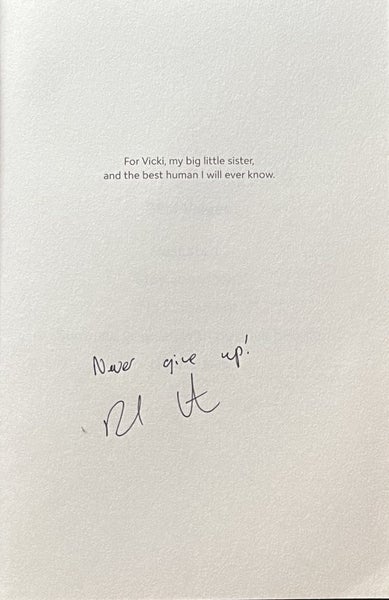 For Vicki, my big little sister,
and the best human I will ever know.
Never give up!